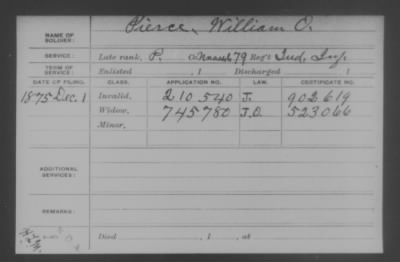 NAME OF SOLDIER: Pierce, William O.
SERVICE: Late rank, P. Co. 79 Reg't Ind. Inf.
TERM OF SERVICE: Enlisted , 1 Discharged , 1
DATE OF FILING. CLASS. APPLICATION NO. LAW. CERTIFICATE NO.
1875 Dec. 1 Invalid. 210 540 J. 902619
Widow. 745780 J.O. 523066
Minor.
ADDITIONAL SERVICES:
REMARKS:
Died , 1 , at